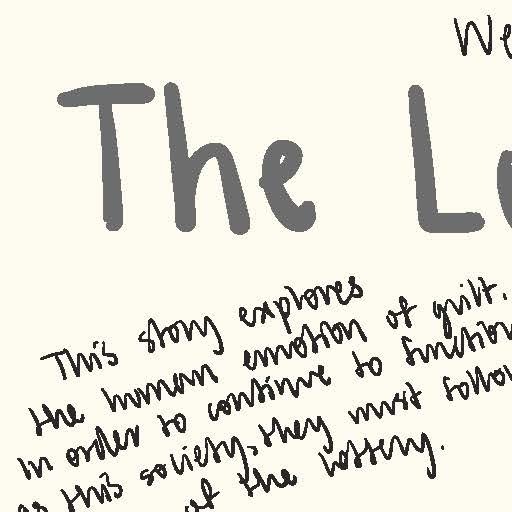 We
The L
This story explores
the human emotion of guilt.
in order to continue to function
as this society, they must follow
of the lottery.